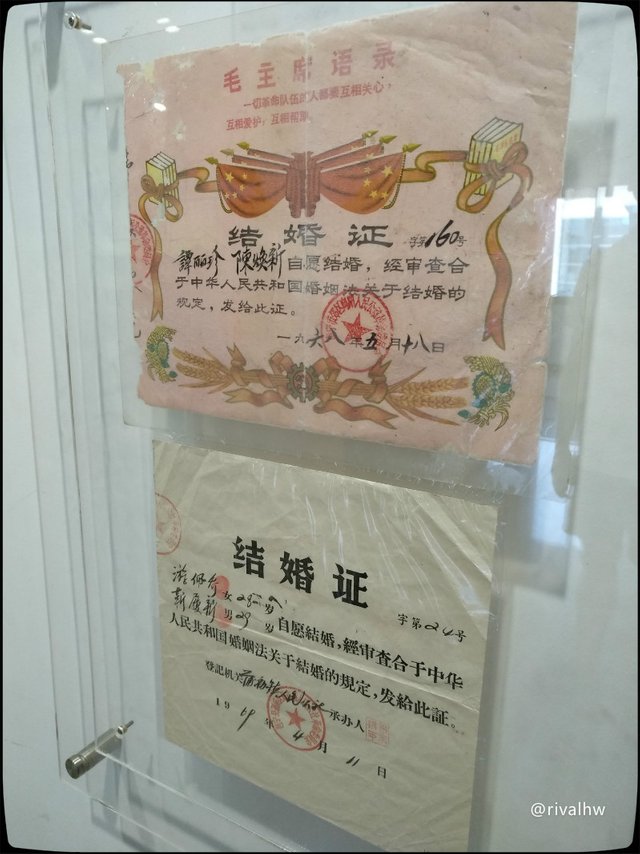 毛主席语录
一切革命队伍的人都要互相关心，
互相爱护，互相帮助。
结婚证 字第160号
譚丽珍 陳焕新 自愿结婚，经审查合
于中华人民共和国婚姻法关于结婚的
规定，发给此证。
一九六八年五月十八日
结婚证
字第24号
女28岁
男29岁 自愿结婚，經审查合于中华
人民共和国婚姻法关于結婚的規定，发給此証。
登記机关 人民公社 承办人
1969年4月11日
@rivalhw